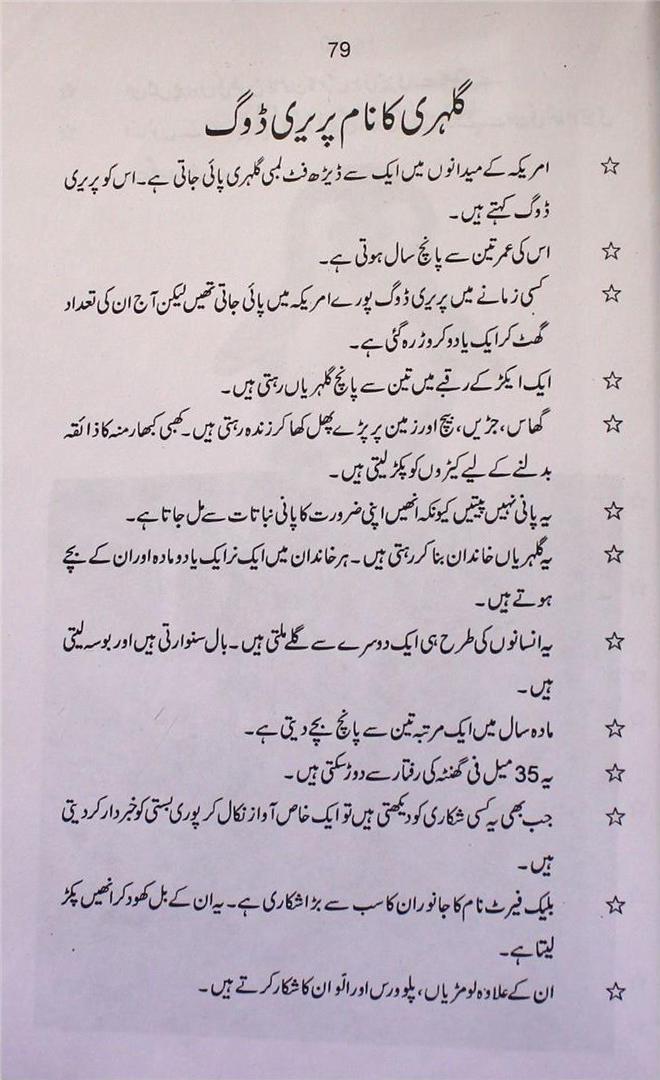 79
گلہری کا نام پریری ڈوگ
☆ امریکہ کے میدانوں میں ایک سے ڈیڑھ فٹ لمبی گلہری پائی جاتی ہے۔ اس کو پریری
ڈوگ کہتے ہیں۔
☆ اس کی عمر تین سے پانچ سال ہوتی ہے۔
☆ کسی زمانے میں پریری ڈوگ پورے امریکہ میں پائی جاتی تھیں لیکن آج ان کی تعداد
گھٹ کر ایک یا دو کروڑ رہ گئی ہے۔
☆ ایک ایکڑ کے رقبے میں تین سے پانچ گلہریاں رہتی ہیں۔
☆ گھاس، جڑیں، بیج اور زمین پر پڑے پھل کھا کر زندہ رہتی ہیں۔ کبھی کبھار منہ کا ذائقہ
بدلنے کے لیے کیڑوں کو پکڑ لیتی ہیں۔
☆ یہ پانی نہیں پیتیں کیونکہ انھیں اپنی ضرورت کا پانی نباتات سے مل جاتا ہے۔
☆ یہ گلہریاں خاندان بنا کر رہتی ہیں۔ ہر خاندان میں ایک نر ایک یا دو مادہ اور ان کے بچے
ہوتے ہیں۔
☆ یہ انسانوں کی طرح ہی ایک دوسرے سے گلے ملتی ہیں۔ بال سنوارتی ہیں اور بوسہ لیتی
ہیں۔
☆ مادہ سال میں ایک مرتبہ تین سے پانچ بچے دیتی ہے۔
☆ یہ 35 میل فی گھنٹہ کی رفتار سے دوڑ سکتی ہیں۔
☆ جب بھی یہ کسی شکاری کو دیکھتی ہیں تو ایک خاص آواز نکال کر پوری بستی کو خبردار کر دیتی
ہیں۔
☆ بلیک فیرٹ نام کا جانور ان کا سب سے بڑا شکاری ہے۔ یہ ان کے بل کھود کر انھیں پکڑ
لیتا ہے۔
☆ ان کے علاوہ لومڑیاں، پلوورس اور الّو ان کا شکار کرتے ہیں۔